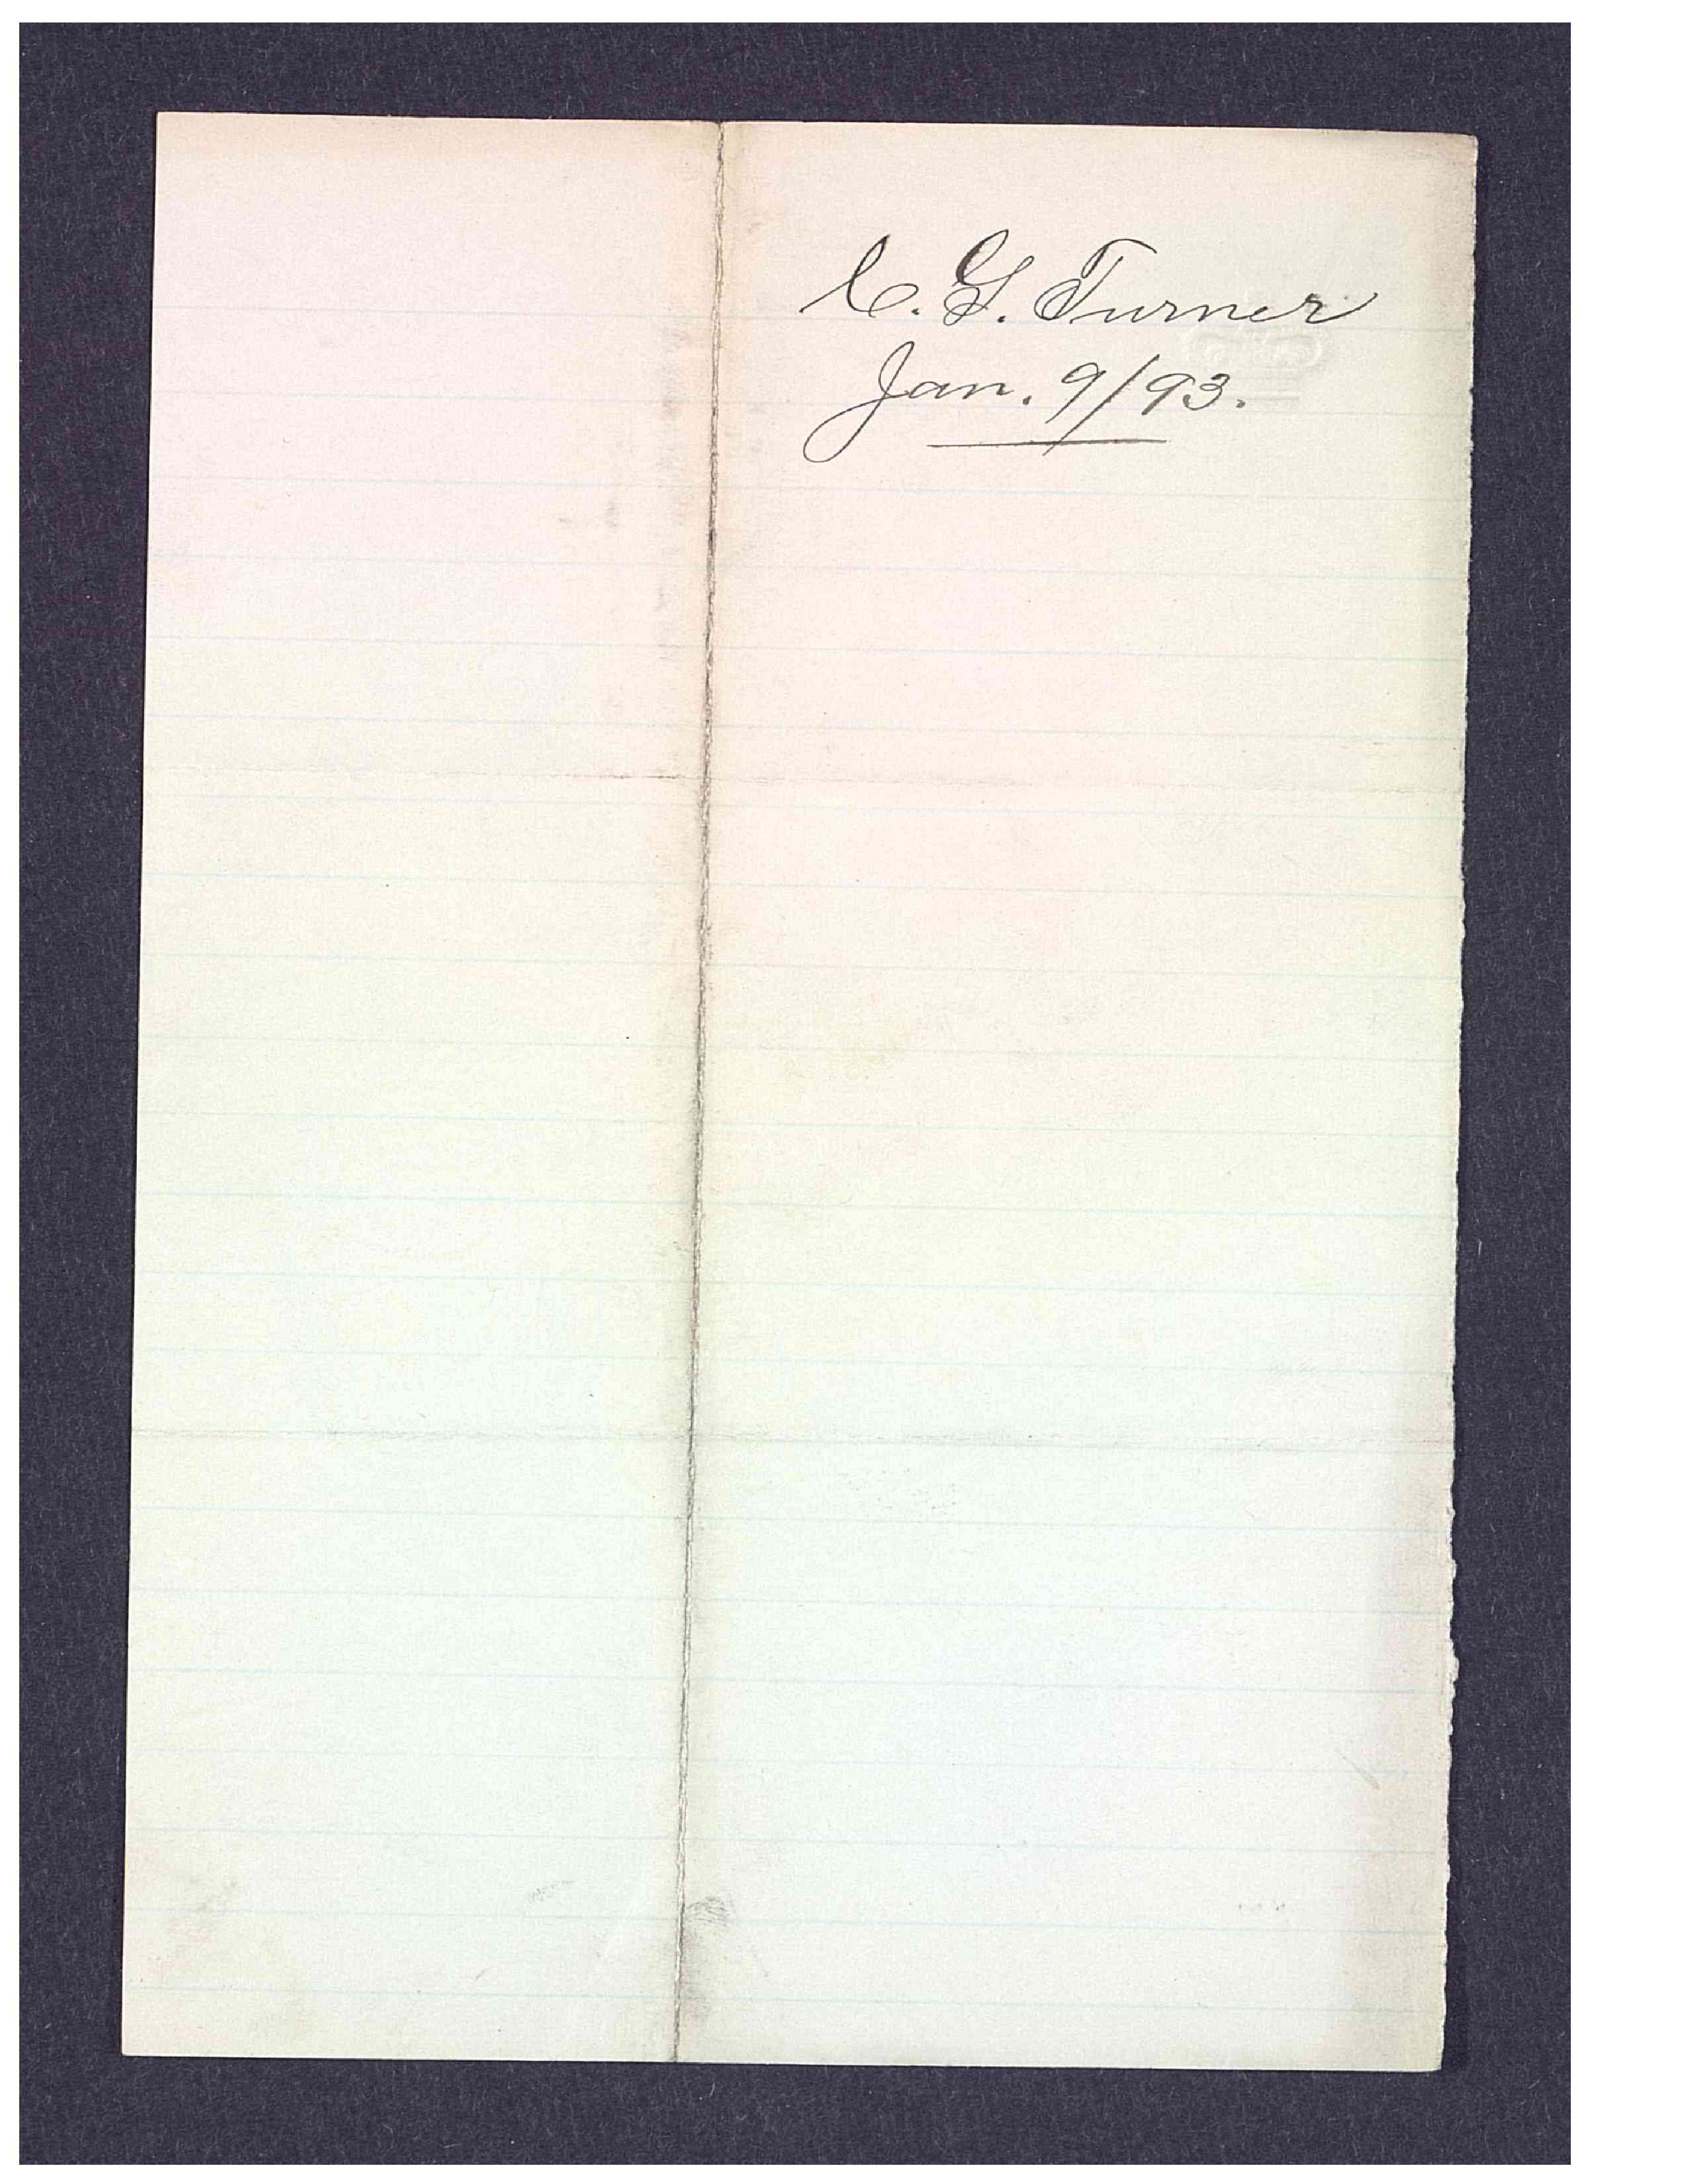 C. G. Turner
Jan. 9/93.